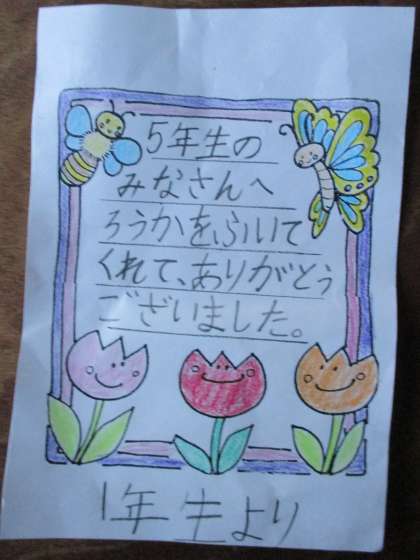 5年生の
みなさんへ
ろうかをふいて
くれて、ありがとう
ございました。
1年生より